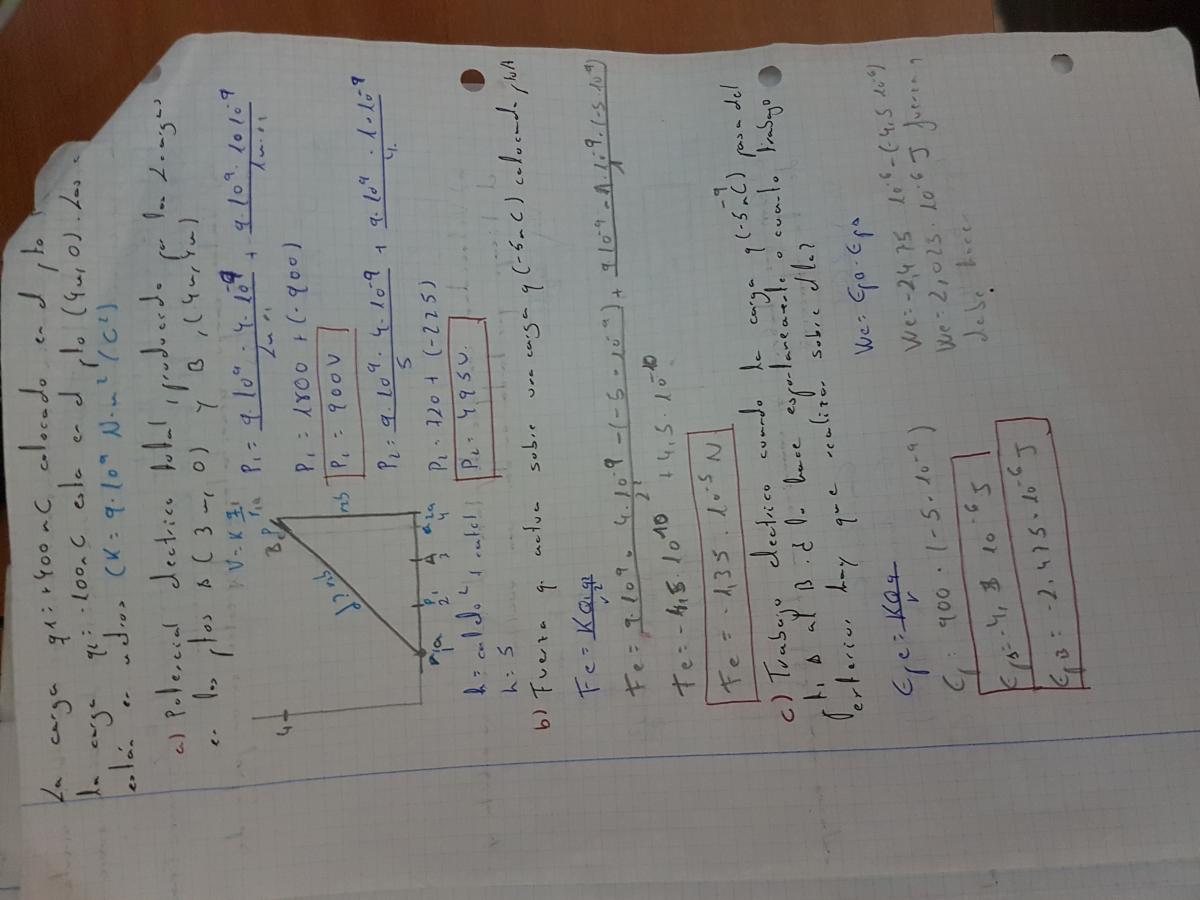 La carga q1: +400nC colocado en el pto
la carga q2: -100nC esta en el pto (4m, 0). Las
están en metros (K = 9·10⁹ N·m²/C²)
a) Potencial electrico total, producido por las 2 cargas
en los ptos A(3m, 0) y B, (4m, 4m)
4
B
1
2
3
4
h = 5
P1 = 9·10⁹ · 4·10⁻⁹ + 9·10⁹ · 10·10⁻⁹
P1 = 1800 + (-900)
P1 = 900V
P2 = 9·10⁹ · 4·10⁻⁹ / 5 + 9·10⁹ · 1·10⁻⁹ / 4
P2 = 720 + (-225)
P2 = 495V.
b) Fuerza q. actua sobre una carga q (-5nC) colocada ptoA
Fe = KQ1q2 / r²
Fe = 9·10⁹ · 4·10⁻⁹ - (-5·10⁻⁹) / 2² + 9·10⁻⁹ · 1·10⁻⁹ · (-5·10⁻⁹) / 1
Fe = -4,5·10¹⁰ + 4,5·10⁻¹⁰
Fe = -1,35·10⁻⁵ N
c) Trabajo electrico cuando la carga q (-5nC) pasa del
A al B. ¿Lo hace espontaneamente o cuanto trabajo
exterior hay que realizar sobre ella?
Epe = KQq / r
Ep = 900 · (-5·10⁻⁹)
10⁻⁶ J
EpB = -2,475·10⁻⁶ J
We = EpB - EpA
We = -2,475 10⁻⁶ - (-4,5 10⁻⁶)
We = 2,025·10⁻⁶ J fuerza q
debe hacer